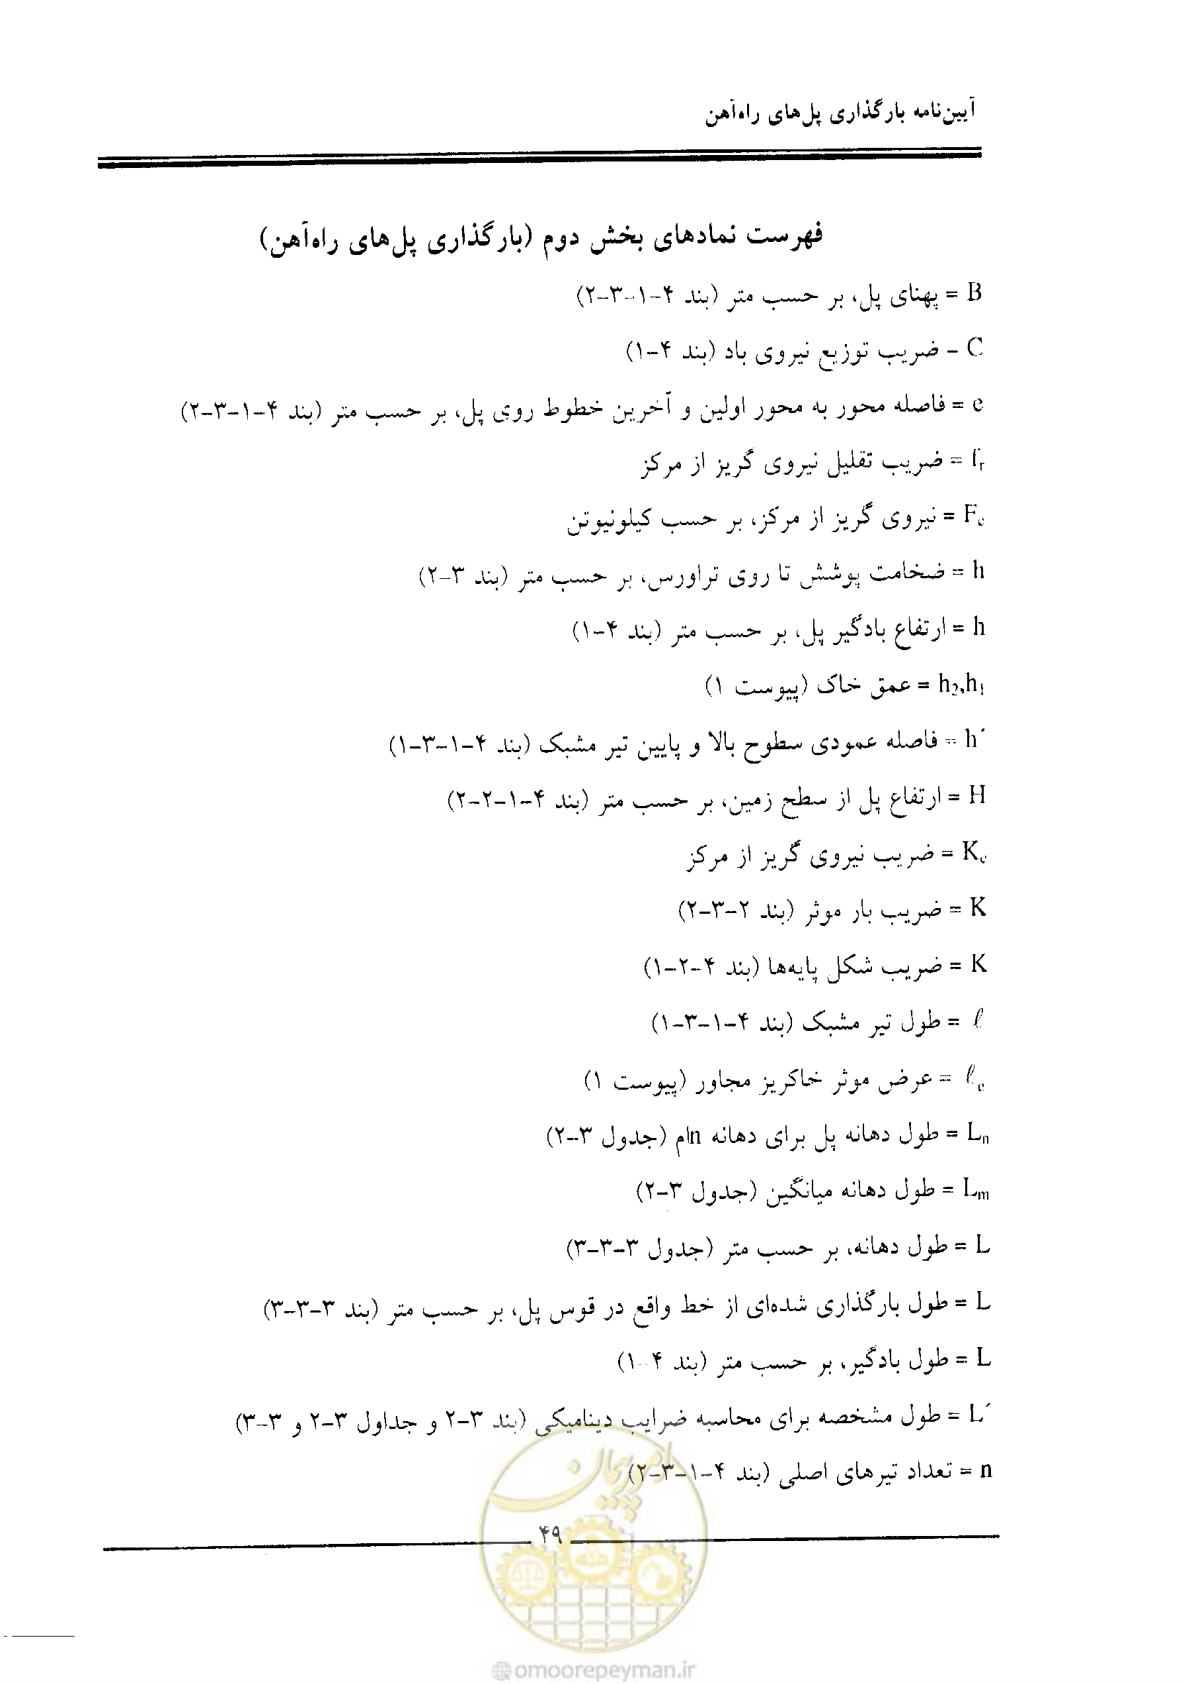 آیین‌نامه بارگذاری پل‌های راه‌آهن
فهرست نمادهای بخش دوم (بارگذاری پل‌های راه‌آهن)
B = پهنای پل، بر حسب متر (بند ۴-۱-۳-۲)
C - ضریب توزیع نیروی باد (بند ۴-۱)
e = فاصله محور به محور اولین و آخرین خطوط روی پل، بر حسب متر (بند ۴-۱-۳-۲)
fr = ضریب تقلیل نیروی گریز از مرکز
Fc = نیروی گریز از مرکز، بر حسب کیلونیوتن
h = ضخامت پوشش تا روی تراورس، بر حسب متر (بند ۳-۲)
h = ارتفاع بادگیر پل، بر حسب متر (بند ۴-۱)
h2,h1 = عمق خاک (پیوست ۱)
h´ = فاصله عمودی سطوح بالا و پایین تیر مشبک (بند ۴-۱-۳-۱)
H = ارتفاع پل از سطح زمین، بر حسب متر (بند ۴-۱-۲-۲)
Kc = ضریب نیروی گریز از مرکز
K = ضریب بار موثر (بند ۲-۳-۲)
K = ضریب شکل پایه‌ها (بند ۴-۲-۱)
ℓ = طول تیر مشبک (بند ۴-۱-۳-۱)
ℓe = عرض موثر خاکریز مجاور (پیوست ۱)
Ln = طول دهانه پل برای دهانه nام (جدول ۳-۲)
Lm = طول دهانه میانگین (جدول ۳-۲)
L = طول دهانه، بر حسب متر (جدول ۳-۳-۳)
L = طول بارگذاری شده‌ای از خط واقع در قوس پل، بر حسب متر (بند ۳-۳-۳)
L = طول بادگیر، بر حسب متر (بند ۴-۱)
L´ = طول مشخصه برای محاسبه ضرایب دینامیکی (بند ۳-۲ و جداول ۳-۲ و ۳-۳)
n = تعداد تیرهای اصلی (بند ۴-۱-۳-۲)
امور پیمان
۴۹
@omoorepeyman.ir